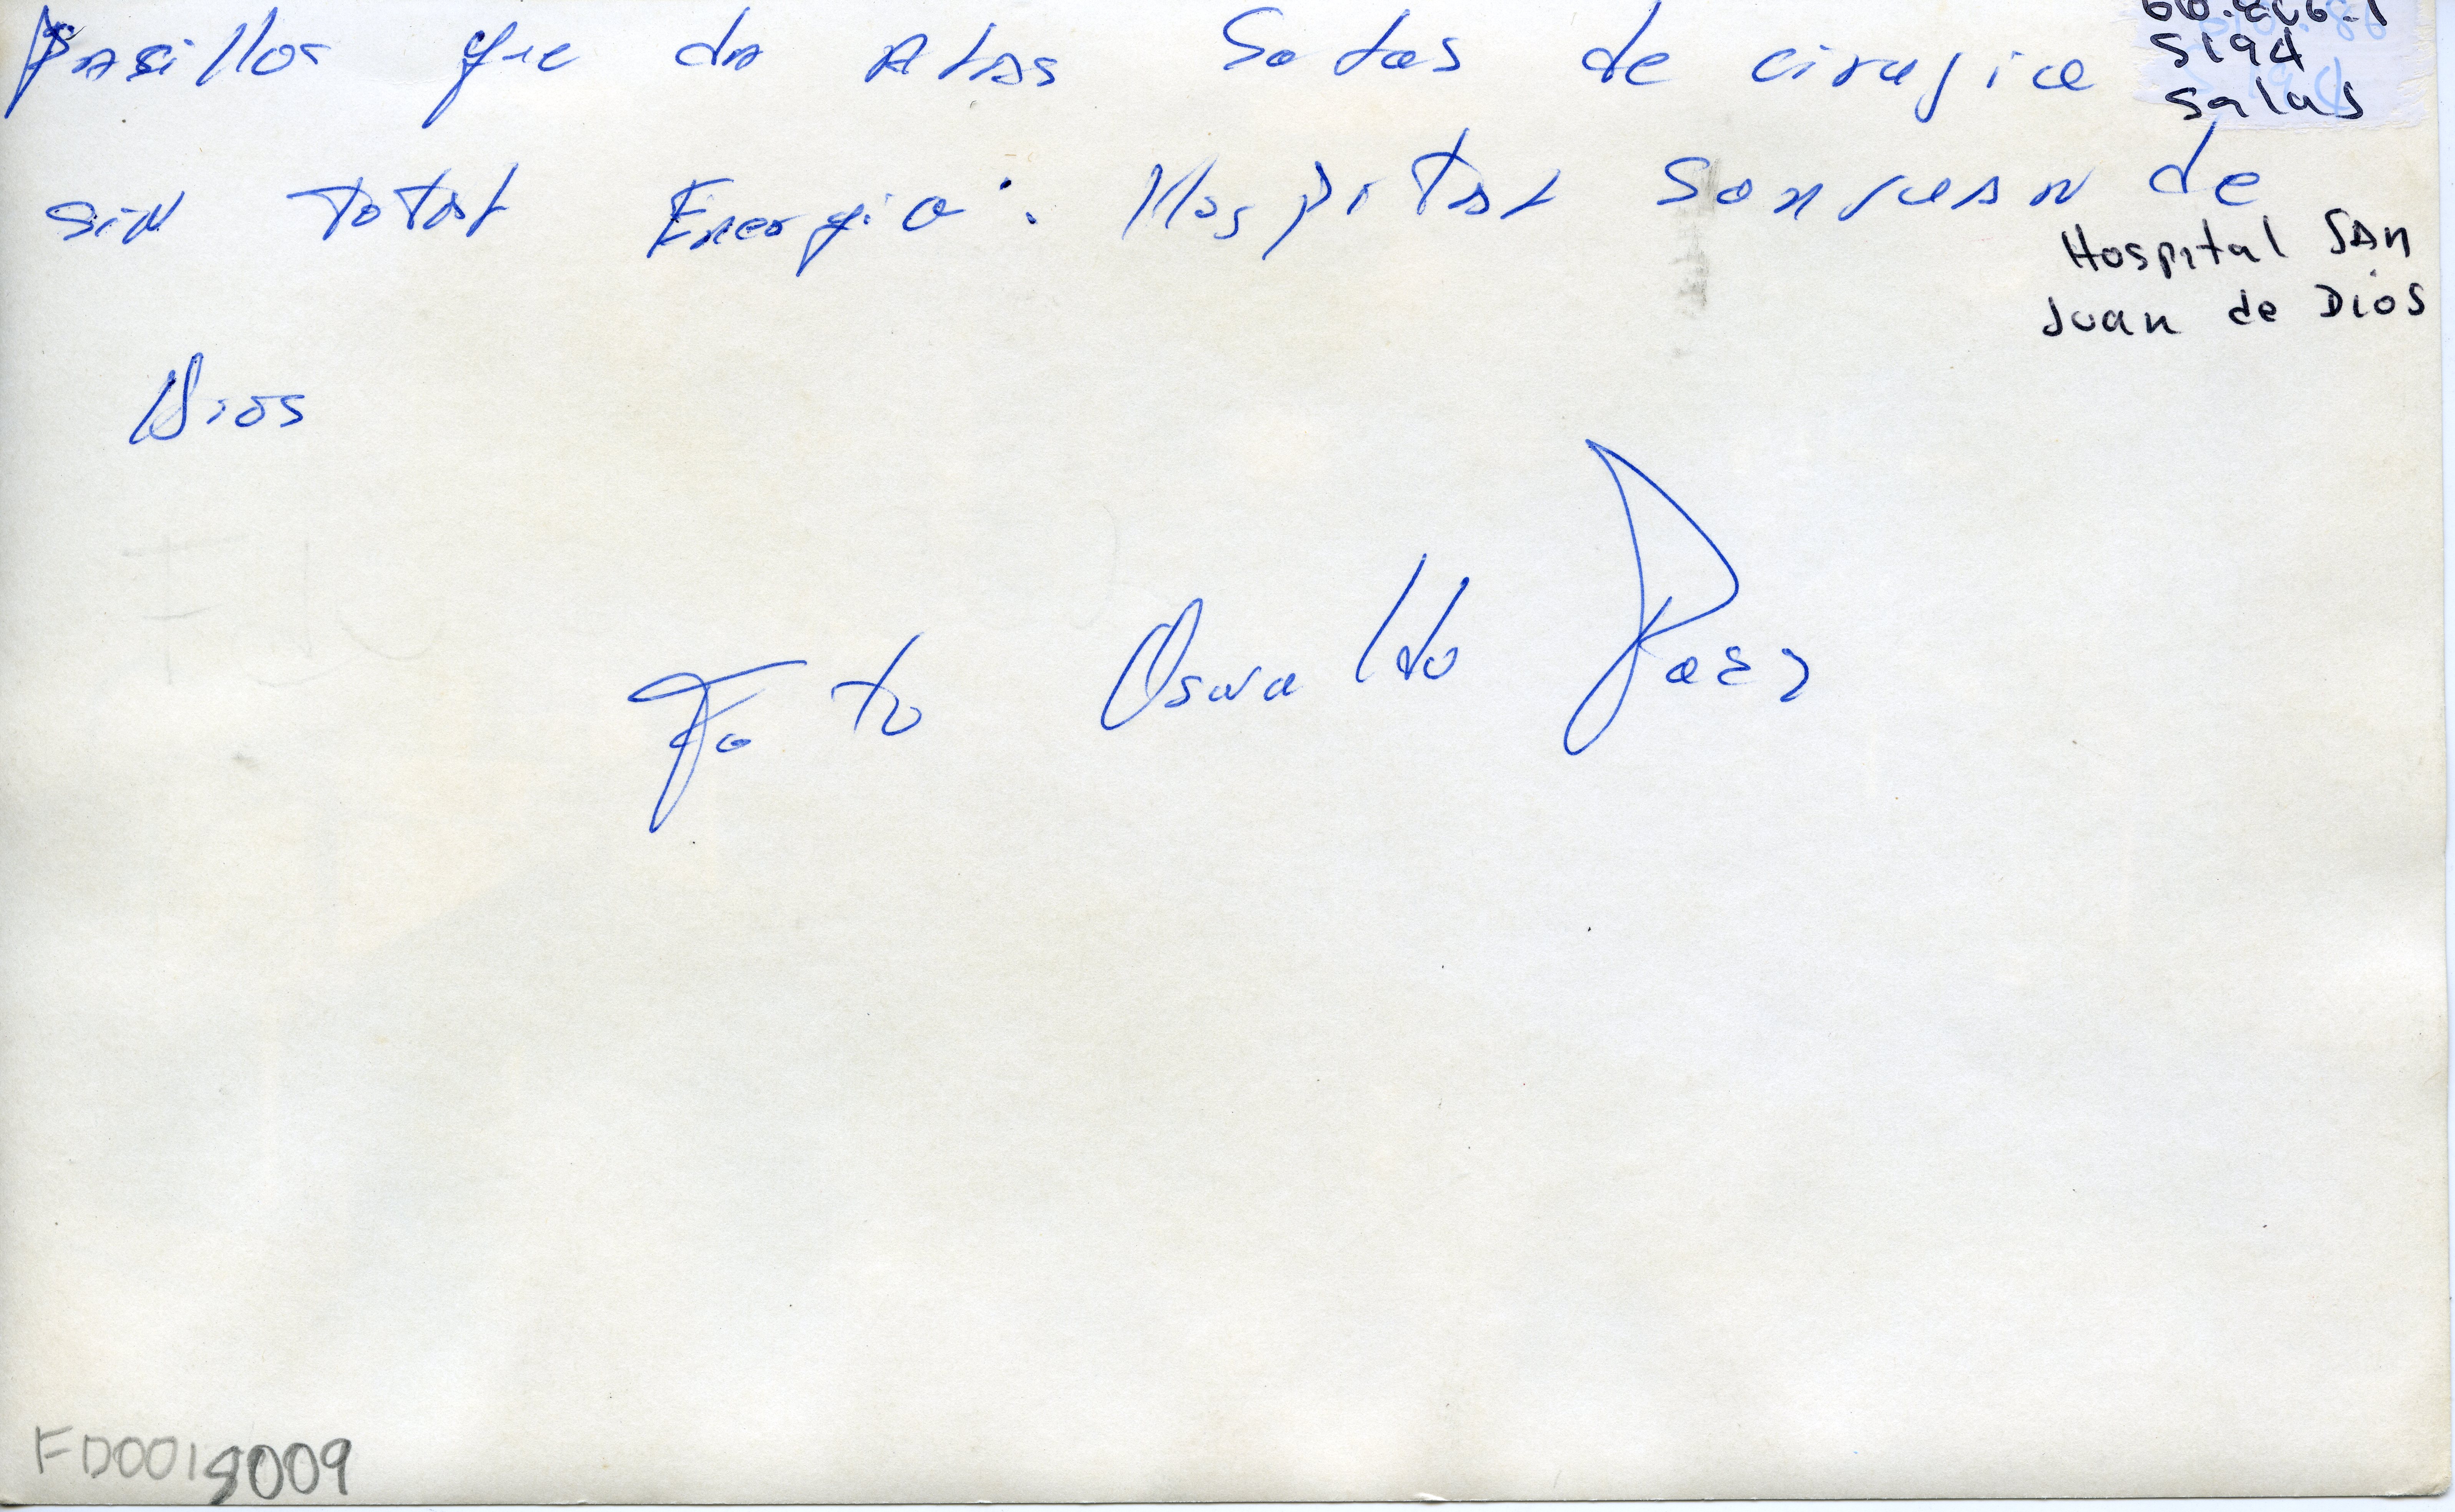 Pasillos que da a las Salas de cirugia
sin total Energia. Hospital San Juan de
Dios
Foto Oswaldo Paez
S194
Salas
Hospital San
Juan de Dios
FD0019009